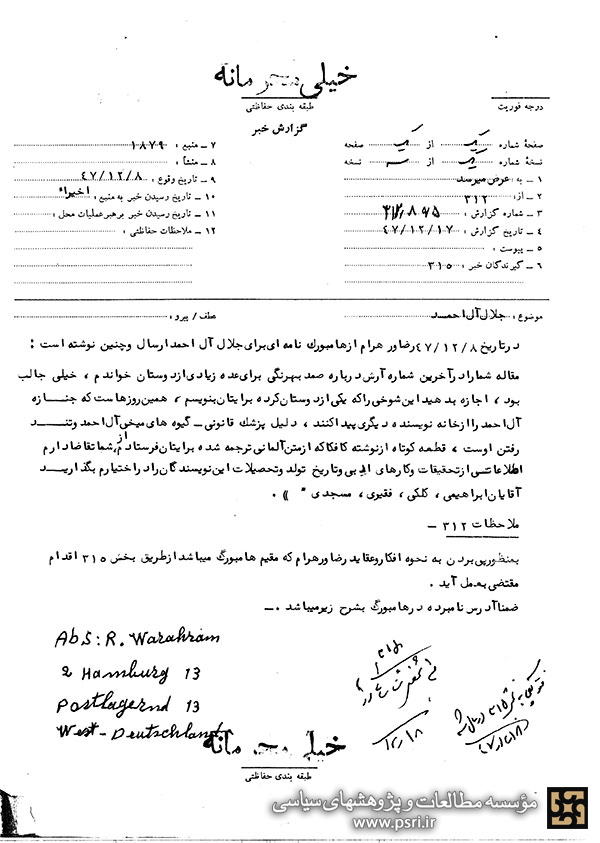 خیلی محرمانه
طبقه بندی حفاظتی
درجه فوریت
گزارش خبر
صفحهٔ شماره یک از یک صفحه
نسخهٔ شماره یک از سه نسخه
۱ ــ به : عرض میرسد
۲ ــ از : ۳۱۲
۳ ــ شماره گزارش :
۴ ــ تاریخ گزارش : ۴۷/۱۲/۱۷
۵ ــ پیوست :
۶ ــ گیرندگان خبر : ۳۱۵
۷ ــ منبع : ۱۸۷۹
۸ ــ منشأ :
۹ ــ تاریخ وقوع : ۴۷/۱۲/۸
۱۰ ــ تاریخ رسیدن خبر به منبع : اخیرا"
۱۱ ــ تاریخ رسیدن خبر برهبر عملیات محل :
۱۲ ــ ملاحظات حفاظتی :
موضوع : جلال آل احمد
عطف / پیرو :
در تاریخ ۴۷/۱۲/۸ رضا ورهرام از هامبورک نامه ای برای جلال آل احمد ارسال و چنین نوشته است :
مقاله شما را در آخرین شماره آرش درباره صمد بهرنگی برای عده زیادی از دوستان خواندم ، خیلی جالب
بود ، اجازه بدهید این شوخی را که یکی از دوستان کرده برایتان بنویسم ، همین روزهاست که جنازه
آل احمد را از خانه نویسنده دیگری پیدا کنند ، دلیل پزشک قانونی ــ گیوه های میخی آل احمد و تند
رفتن اوست ، قطعه کوتاه از نوشته کافکا که از متن آلمانی ترجمه شده برایتان فرستادم از شما تقاضا دارم
اطلاعاتی از تحقیقات و کارهای ادبی و تاریخ تولد و تحصیلات این نویسندگان را در اختیارم بگذارید
آقایان ابراهیمی ، کلکی ، فقیری ، مسجدی " )) .
ملاحظات ۳۱۲ ــ
بمنظور پی بردن به نحوه افکار و عقاید رضا ورهرام که مقیم هامبورگ میباشد از طریق بخش ۳۱۵ اقدام
مقتضی بعمل آید .
ضمنا آدرس نامبرده در هامبورگ بشرح زیر میباشد .ــ
Abs: R. Warahram
2 Hamburg 13
Postlagernd 13
West-Deutschland
خیلی محرمانه
طبقه بندی حفاظتی
مؤسسه مطالعات و پژوهشهای سیاسی
www.psri.ir